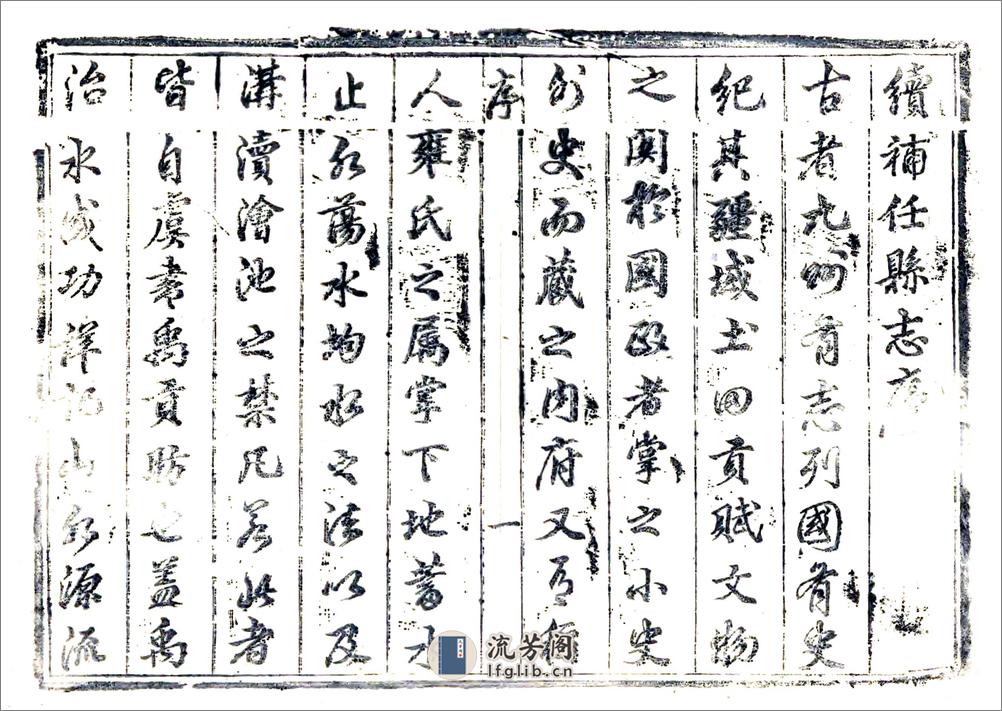 續補任縣志序
古者九州有志列國有史
紀其疆域土田貢賦文物
之関於國政者掌之小史
外史而藏之内府又有稻
序
一
人雍氏之属掌下地蓄水
止水蕩水均水之法以及
溝瀆澮池之禁凡若此者
皆自虞書禹貢昉也盖禹
治水成功詳記山川源流
流芳阁
lfglib.cn